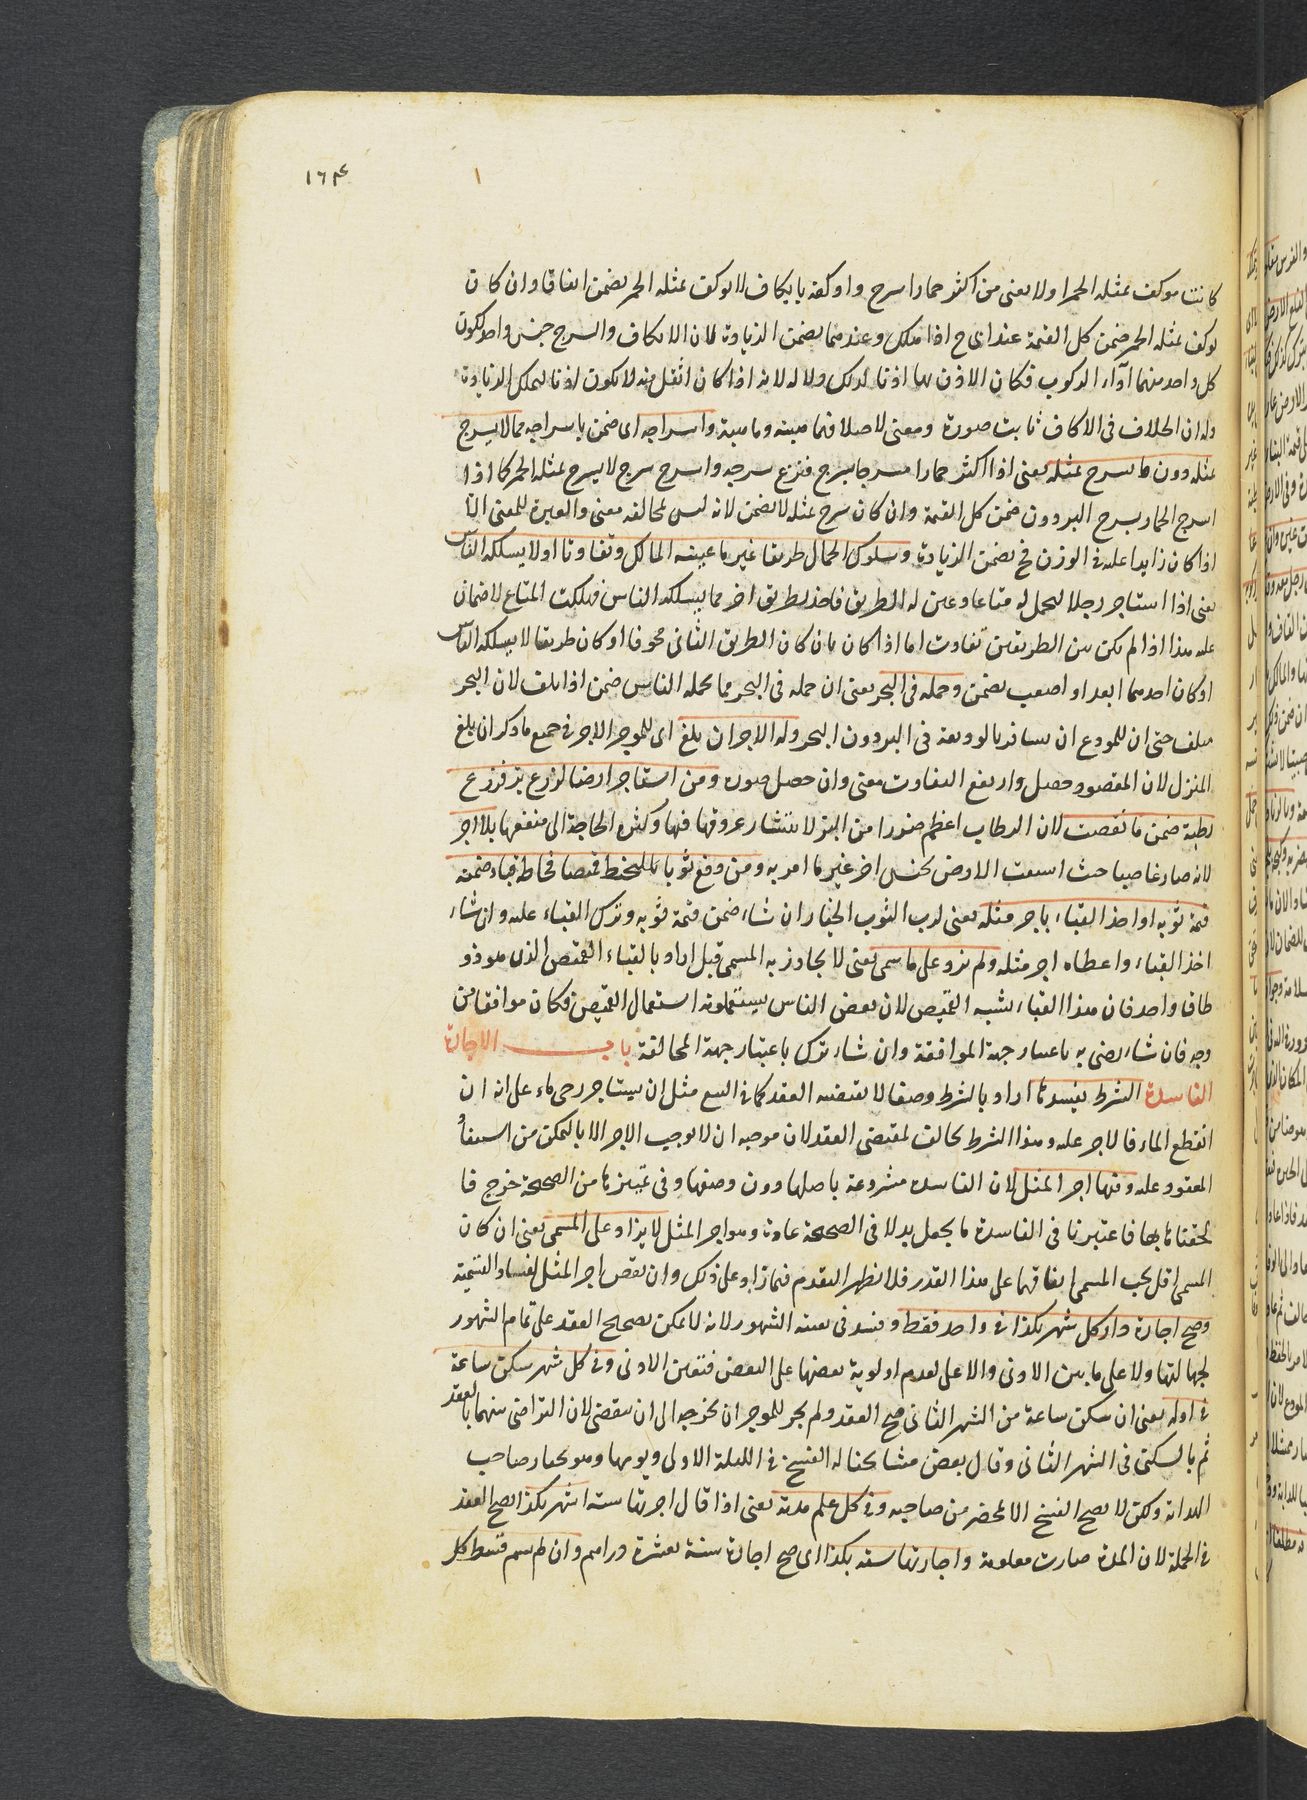 ١٦٤
كانت موكف بمثله الحمر اولا يعنى من اكثر حمارا سرج واوكفه بايكاف لا يوكف بمثله الحمر يضمن اتفاقا وان كان
يوكف بمثله الحمر ضمن كل القيمة عند ابى ح اذا هلك وعندهما يضمن الزيادة لان الاكاف والسرج جنس واحد لكون
كل واحد منهما آداء الركوب فكان الاذن بهذا اذنا لذلك ولا له لانه اذا كان اثقل منه لا يكون اذنا بحمل الزيادة
وله ان الخلاف فى الاكاف ثابت صورة ومعنى لاختلافهما هيئة وماهية واسراجه اى ضمن باسراجه مما لا يسرج
بمثله دون ما يسرج بمثله يعنى اذا اكثر حمارا مسرجا بسرج فنزع سرجه واسرج بسرج لا يسرج بمثله الحمر كما اذا
اسرج الحمار بسرج البرذون ضمن كل القيمة وان كان يسرج بمثله لا يضمن لانه ليس مخالفه معنى والعبرة للمعنى الا
اذا كان زايدا عليه فى الوزن فح يضمن الزيادة وسلوك الحمال طريقا غير ما عينه المالك وتفاوتا او لا يسلكه الناس
يعنى اذا استاجر رجلا ليحمل له متاعا وعين له الطريق فاخذ بطريق اخر مما يسلكه الناس فهلكت المتاع لا ضمان
عليه هذا اذا لم يكن بين الطريقين تفاوت اما اذا كان بان كان الطريق الثانى مخوفا او كان طريقا لا يسلكه الناس
او كان احدهما ابعد او اصعب يضمن وحمله فى البحر يعنى ان حمله فى البحر مما يحمله الناس ضمن اذا تلف لان البحر
متلف حتى ان للمودع ان يسافر بالوديعة فى البر دون البحر وله الاجر ان بلغ اى للموجر الاجر فى جميع ما ذكر ان بلغ
المنزل لان المقصود حصل وارتفع التفاوت معنى وان حصل صورة ومن استاجر ارضا لزرع بر فزرع
رطبة ضمن ما نقصت لان الرطاب اعظم ضررا من البر لانتشار عروقها فيها وكثرة الحاجة الى سقيها بلا اجر
لانه صار غاصبا حيث اشغلت الارض بجنس اخر غير ما امر به ومن دفع ثوبا ليخيط قميصا فخاط قباء ضمنه
قيمة ثوبه او اخذ القباء باجر مثله يعنى لرب الثوب الخيار ان شاء ضمن قيمة ثوبه وترك القباء عليه وان شاء
اخذ القباء واعطاه اجر مثله ولم يزد على ما سمى يعنى لا يجاوز به المسمى قيل اراد بالقباء القميص الذى هو ذو
طاق واحد فان هذا القباء يشبه القميص لان بعض الناس يستعملونه استعمال القميص فكان موافقا من
وجه فان شاء رضى به باعتبار جهة الموافقة وان شاء ترك باعتبار جهة المخالفة باب الاجارة
الفاسدة الشرط يفسدها اراد بالشرط وصفا لا يقتضيه العقد كما فى البيع مثل ان يستاجر رحى ماء على انه ان
انقطع الماء فالاجر عليه وهذا الشرط مخالف لمقتضى العقد لان موجبه ان لا يوجب الاجر الا بالتمكن من استيفاء
المعقود عليه وفيها اجر المثل لان الفاسدة مشروعة باصلها دون وصفها وفى تمييزها من الصحيحة خرج فا
لحقناها بها فاعتبرنا فى الفاسدة ما يجعل بدلا فى الصحيحة عادة وهو اجر المثل لا يزاد على المسمى يعنى ان كان
المسمى اقل يجب المسمى لاتفاقهما على هذا القدر فلا يظهر التقوم فيما زاد على ذلك وان نقص اجر المثل لفساد التسمية
وصح اجارة دار كل شهر بكذا فى واحد فقط وفسد فى بقية الشهور لانه لا يمكن تصحيح العقد على تمام الشهور
لجهالتها ولا على ما بين الادنى والاعلى لعدم اولوية بعضها على البعض فتعين الادنى وفى كل شهر سكن ساعة
فى اوله يعنى ان سكن ساعة من الشهر الثانى صح العقد ولم يجز للموجر ان يخرجه الى ان ينقضى لان التراضى منهما بالعقد
ثم بالسكنى فى الشهر الثانى وقال بعض مشايخنا له الفسخ فى الليلة الاولى ويومها وهو مختار صاحب
الهداية ولكن لا يصح الفسخ الا بمحضر من صاحبه وفى كل علم مدته يعنى اذا قال اجرتها ستة اشهر بكذا يصح العقد
فى الجملة لان المدة صارت معلومة واجارتها سنة بكذا اى صح اجارة سنة بعشرة دراهم وان لم يسم قسط كل